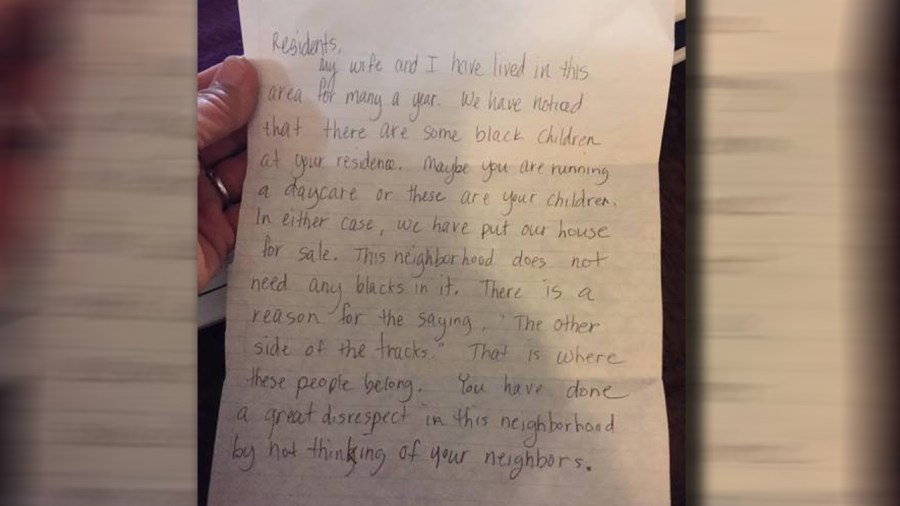 Residents,
My wife and I have lived in this
area for many a year. We have noticed
that there are some black children
at your residence. Maybe you are running
a daycare or these are your children.
In either case, we have put our house
for sale. This neighborhood does not
need any blacks in it. There is a
reason for the saying, "The other
side of the tracks." That is where
these people belong. You have done
a great disrespect in this neighborhood
by not thinking of your neighbors.